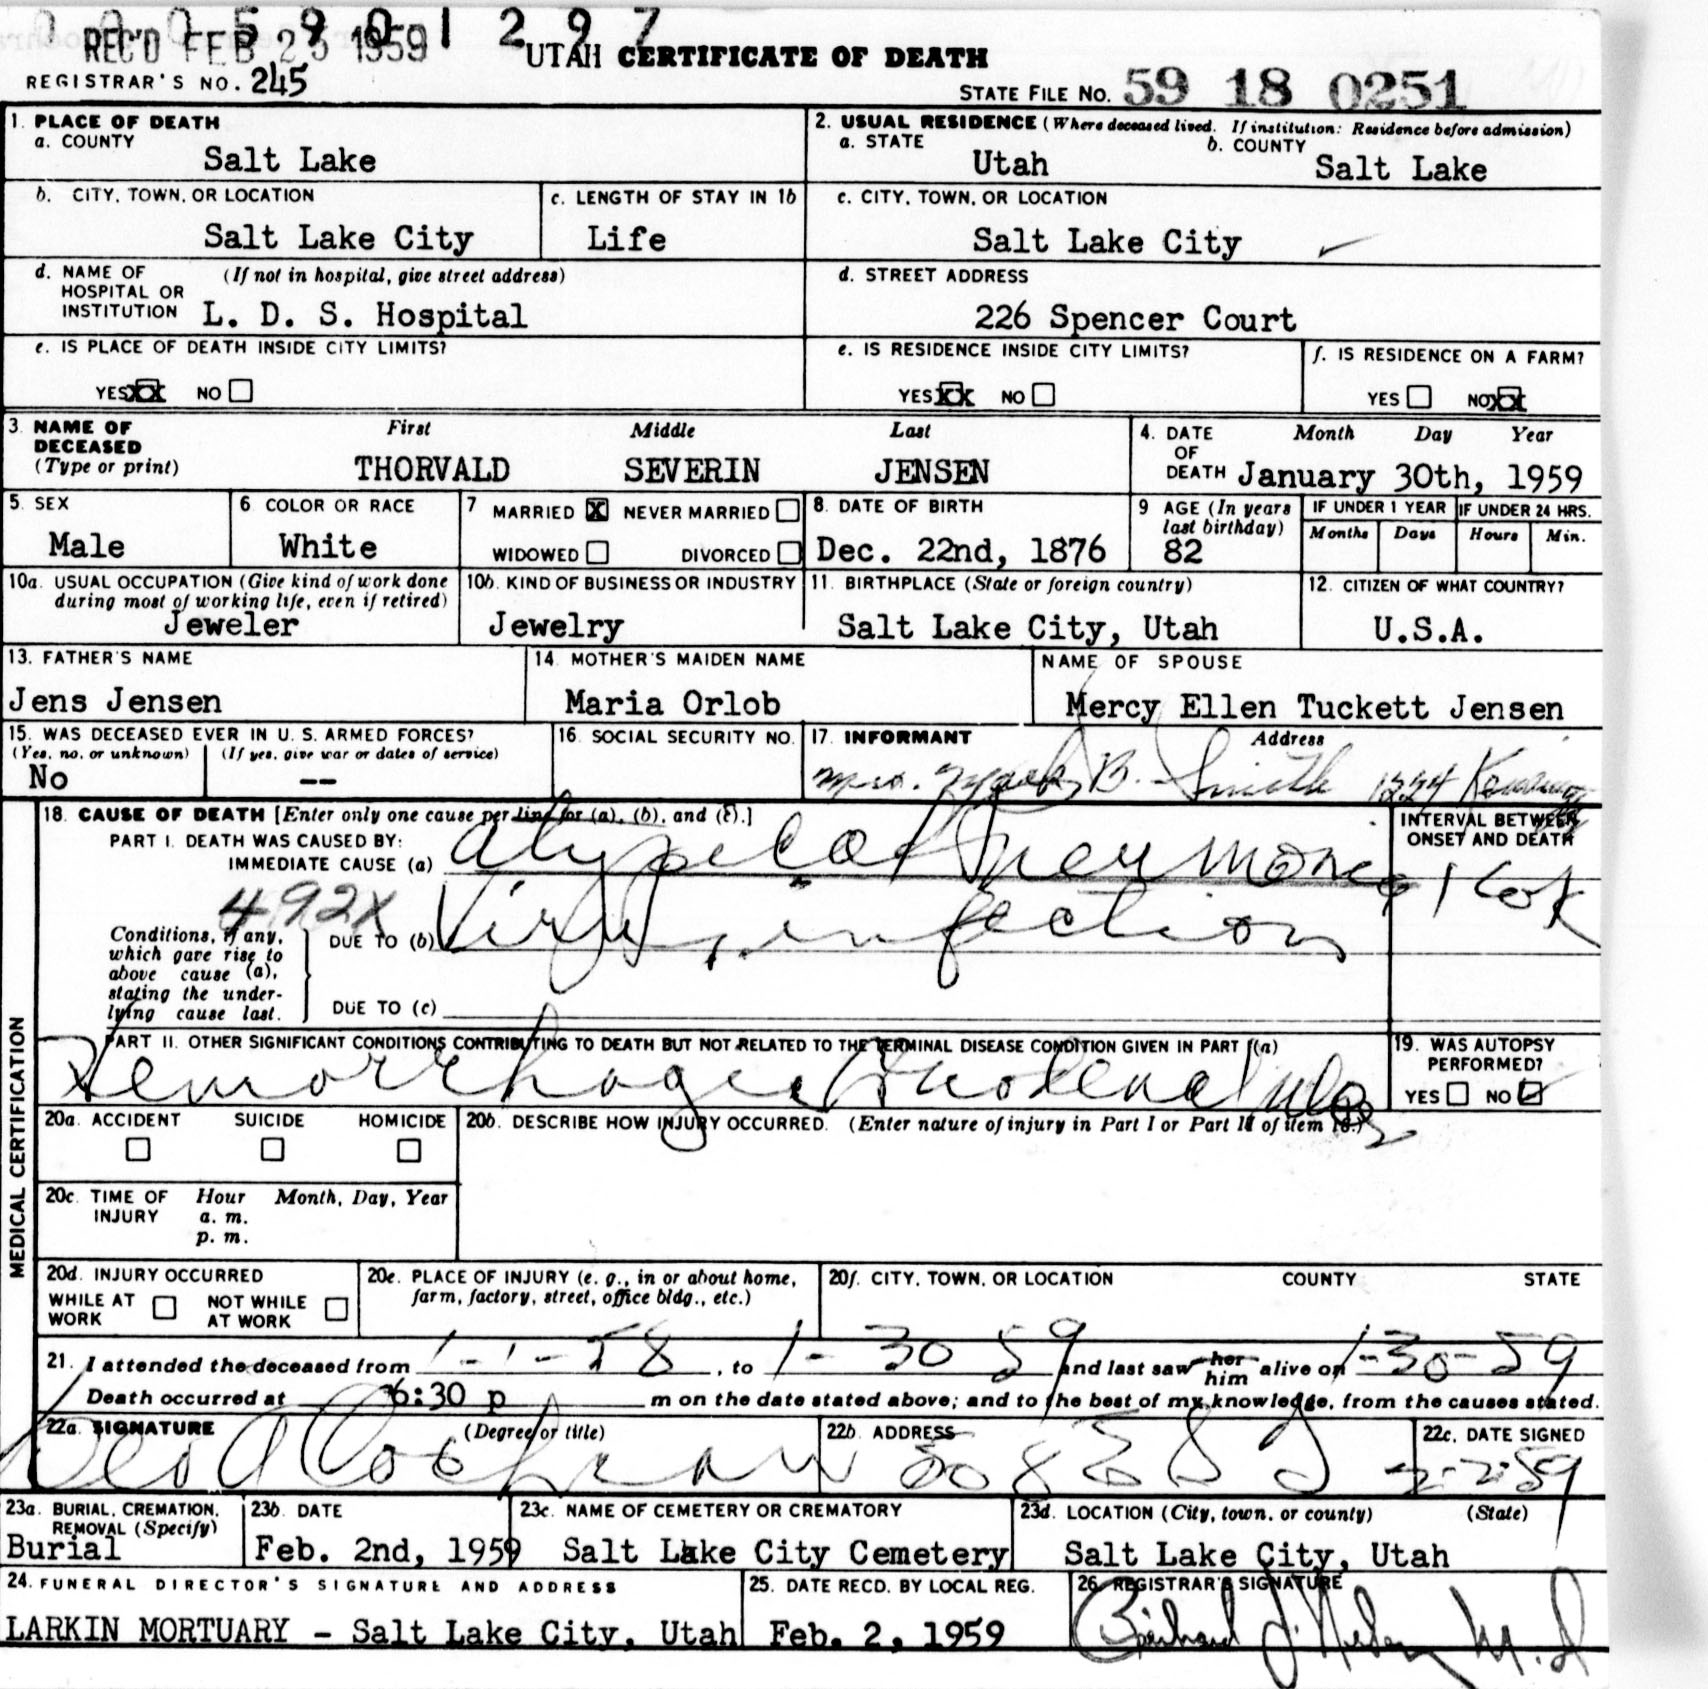 0 0 0 5 9 0 1 2 9 7
REC'D FEB 25 1959
UTAH CERTIFICATE OF DEATH
REGISTRAR'S NO. 245
STATE FILE NO. 59 18 0251
1. PLACE OF DEATH
a. COUNTY
Salt Lake
2. USUAL RESIDENCE (Where deceased lived. If institution: Residence before admission)
a. STATE
Utah
b. COUNTY
Salt Lake
b. CITY, TOWN, OR LOCATION
Salt Lake City
c. LENGTH OF STAY IN 1b
Life
c. CITY, TOWN, OR LOCATION
Salt Lake City
d. NAME OF HOSPITAL OR INSTITUTION
(If not in hospital, give street address)
L. D. S. Hospital
d. STREET ADDRESS
226 Spencer Court
e. IS PLACE OF DEATH INSIDE CITY LIMITS?
YES XX NO
e. IS RESIDENCE INSIDE CITY LIMITS?
YES XX NO
f. IS RESIDENCE ON A FARM?
YES NO XX
3. NAME OF DECEASED
(Type or print)
First Middle Last
THORVALD SEVERIN JENSEN
4. DATE OF DEATH
Month Day Year
January 30th, 1959
5. SEX
Male
6. COLOR OR RACE
White
7. MARRIED X NEVER MARRIED
WIDOWED DIVORCED
8. DATE OF BIRTH
Dec. 22nd, 1876
9. AGE (In years last birthday)
82
IF UNDER 1 YEAR
Months Days
IF UNDER 24 HRS.
Hours Min.
10a. USUAL OCCUPATION (Give kind of work done
during most of working life, even if retired)
Jeweler
10b. KIND OF BUSINESS OR INDUSTRY
Jewelry
11. BIRTHPLACE (State or foreign country)
Salt Lake City, Utah
12. CITIZEN OF WHAT COUNTRY?
U.S.A.
13. FATHER'S NAME
Jens Jensen
14. MOTHER'S MAIDEN NAME
Maria Orlob
NAME OF SPOUSE
Mercy Ellen Tuckett Jensen
15. WAS DECEASED EVER IN U. S. ARMED FORCES?
(Yes, no, or unknown) (If yes, give war or dates of service)
No --
16. SOCIAL SECURITY NO.
17. INFORMANT Address
Mrs. B. Smith
MEDICAL CERTIFICATION
18. CAUSE OF DEATH [Enter only one cause per line for (a), (b), and (c).]
PART I. DEATH WAS CAUSED BY:
IMMEDIATE CAUSE (a) Atypical Pneumonia
INTERVAL BETWEEN
ONSET AND DEATH
1 wk
492X
Conditions, if any,
which gave rise to
above cause (a),
stating the under-
lying cause last.
DUE TO (b) Virus infection
DUE TO (c)
PART II. OTHER SIGNIFICANT CONDITIONS CONTRIBUTING TO DEATH BUT NOT RELATED TO THE TERMINAL DISEASE CONDITION GIVEN IN PART I(a)
Hemorrhagic Duodenal ulcer
19. WAS AUTOPSY
PERFORMED?
YES NO
20a. ACCIDENT SUICIDE HOMICIDE
20b. DESCRIBE HOW INJURY OCCURRED. (Enter nature of injury in Part I or Part II of item 18.)
20c. TIME OF INJURY
Hour Month, Day, Year
a. m.
p. m.
20d. INJURY OCCURRED
WHILE AT WORK NOT WHILE AT WORK
20e. PLACE OF INJURY (e. g., in or about home,
farm, factory, street, office bldg., etc.)
20f. CITY, TOWN, OR LOCATION COUNTY STATE
21. I attended the deceased from 1-1-58, to 1-30 59 and last saw her him alive on 1-30-59
Death occurred at 6:30 p m on the date stated above; and to the best of my knowledge, from the causes stated.
22a. SIGNATURE (Degree or title)
Cochran
22b. ADDRESS
22c. DATE SIGNED
2-2-59
23a. BURIAL, CREMATION,
REMOVAL (Specify)
Burial
23b. DATE
Feb. 2nd, 1959
23c. NAME OF CEMETERY OR CREMATORY
Salt Lake City Cemetery
23d. LOCATION (City, town, or county) (State)
Salt Lake City, Utah
24. FUNERAL DIRECTOR'S SIGNATURE AND ADDRESS
LARKIN MORTUARY - Salt Lake City, Utah
25. DATE RECD. BY LOCAL REG.
Feb. 2, 1959
26. REGISTRAR'S SIGNATURE
M.D